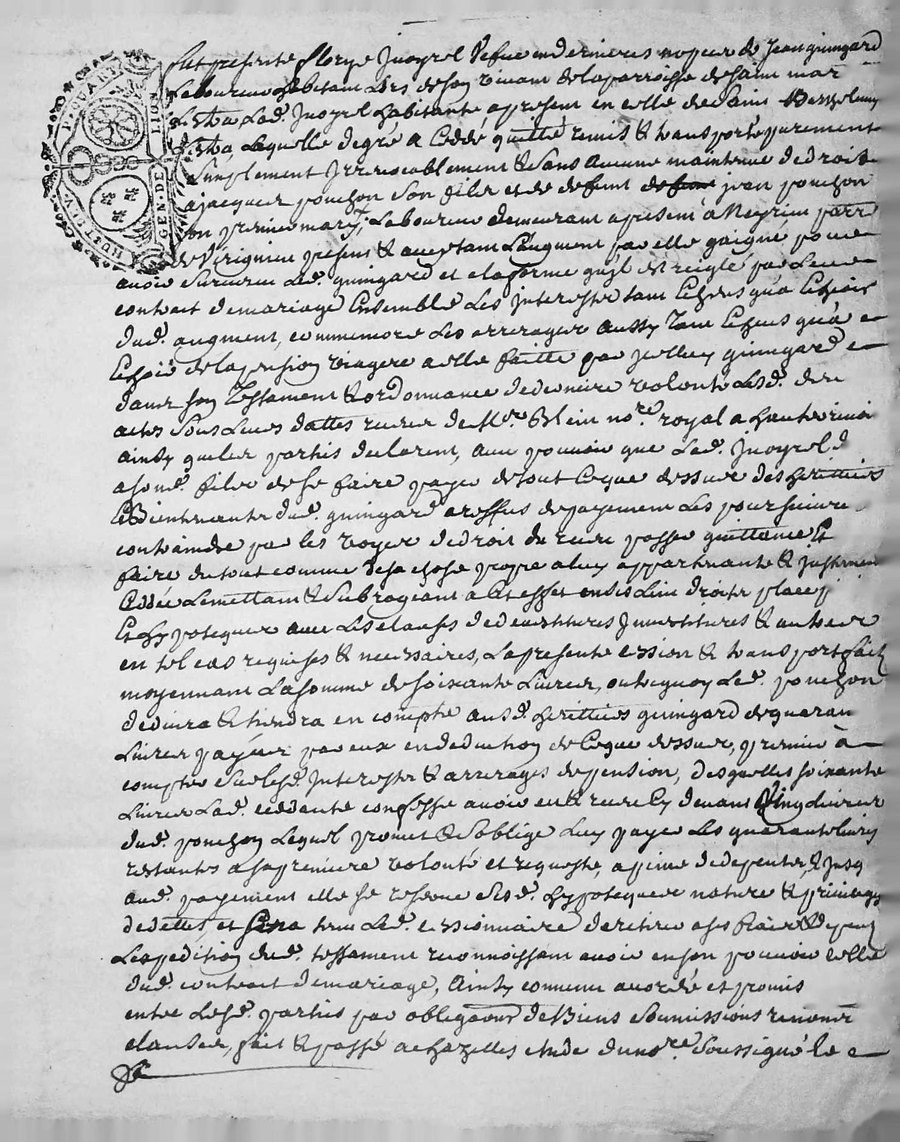 HUIT D. LA P. QUART.
GEN. DE LION
fut presente florye Juoyrel Vefue en dernieres nopces de Jean guingard
Laboureur habitant Lors de son viuant de la parroisse de saint mar
Lad. Juoyrel habitante a present en celle de Saint Barthelemy
Laquelle de gre a Cedde quitté remis & transporté purement
simplement Irreuocablement & Sans Aucune maintenue de droit
a Jacques ponchon Son fils et de deffunt jean ponchon
son premier mary, Laboureur demeurant a present à Meyrieu parr
de Virignieu present & acceptant Laugment par elle gaigné pour
auoir suruescu Led. guingard et a la forme qu'jl est reiglé par Leur
contract de mariage Ensemble Les Interestz tant escheus qu'a escheoir
dud. augment, comm'encore Les arrerages aussy tant escheus qu'a
Eschoir de la pension viagere a elle faitte par jcelluy guingard
dans son Testament & ordonnance de derniere volonté Lesd.
actes Sous Leurs dattes receus de Me. Blein nore. royal a hauteriuoir
ainsy que les parties declarent, auec pouuoir que Lad. Juoyrel d.
a sond. fils de se faire payer de tout Ce que dessus des heritiers
& Bientenants dud. guingard a reffus de payement Les poursuiure
contraindre par les voyes de droit du receu passer quittance Et
faire du tout comme de sa chose propre a luy appartenante & justement
Ceddée Lemettant & Subrogeant a Cet effet en ses Lieu droits place
Et hypoteques auec Les clauses de deuestitures Jnuestitures & autres
en tel cas requises & necessaires, La presente cession & transport fait
moyennant La somme de soixante Liures, outre quoy Led. ponchon
deduira & tiendra en compte ausd. heritiers guingard de quaran
Liures payées par eux en deduction de Ce que dessus, premier à
compter sur lesd. Interestz & arrerages de pension, desquelles soixante
Liures Lad. ceddante confesse auoir eu & receu Cy deuant Vingt Liures
dud. ponchon Lequel promet & s'oblige Luy payer Les quarante liures
restantes a sa premiere volonté et requeste, a peine de depents, & jusq
aud. payement elle se reserue Sesd. hypoteques nature & priuilege
de dettes, et sera tenu Led. cessionnaire de retirer a ses frais & depens
L'expedition dud. testament reconnoissant auoir en son pouuoir celle
dud. contract de mariage, Ainsy conuenu accordé et promis
entre Lesd. parties par obligaon de Biens Soumissions renonon
clauses, fait & passé a chazelles Etude du nore. Soussigné le